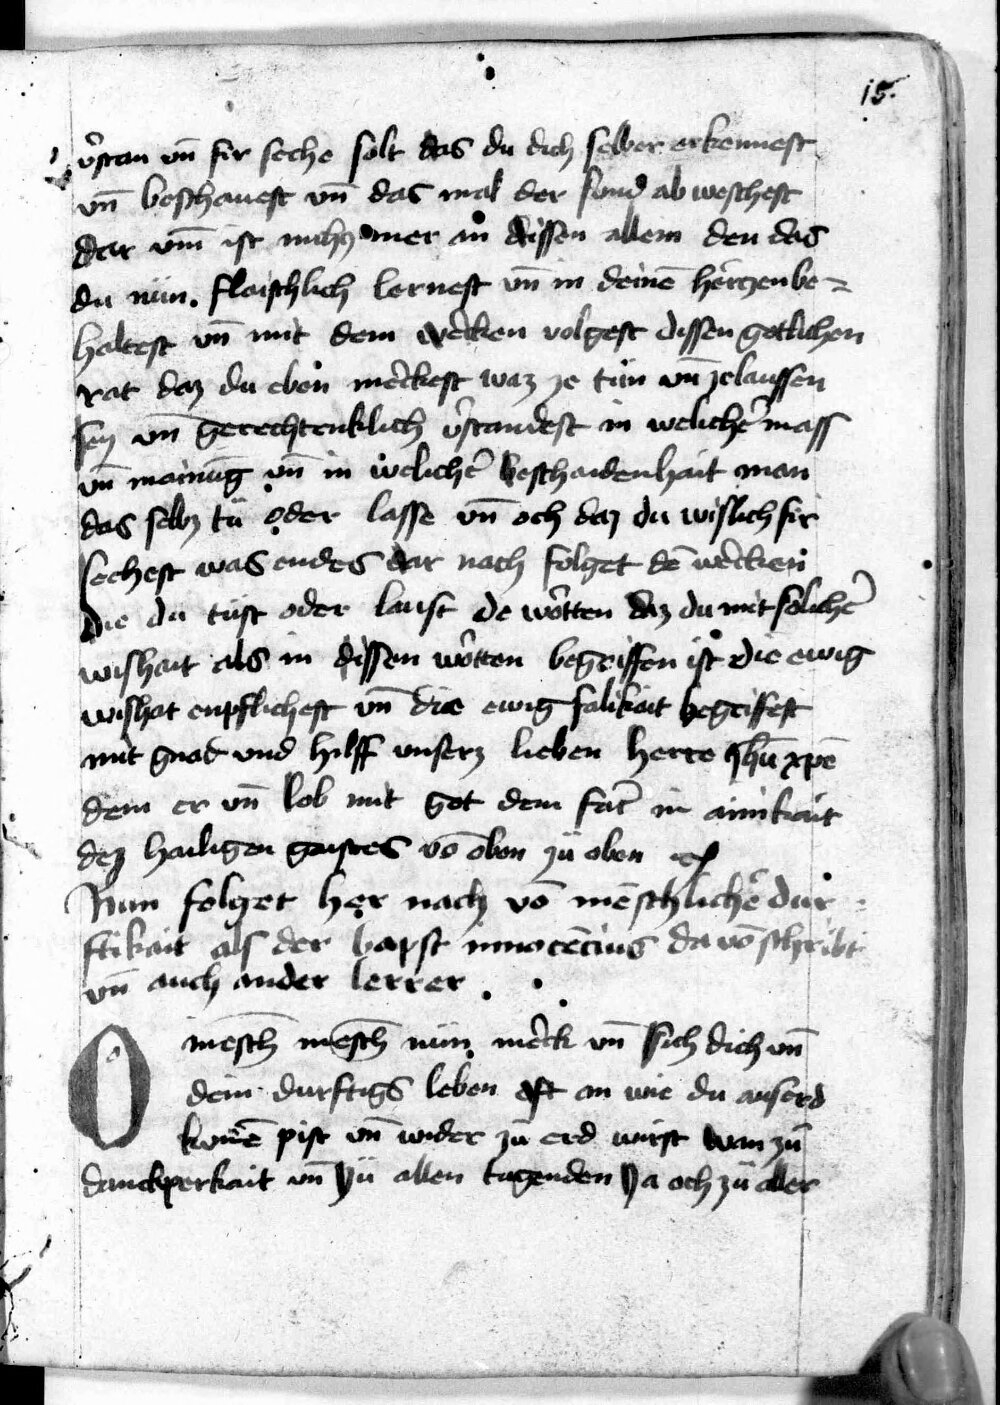 15.
v̉stan vn̄ fir seche solt das du dich selber erkennest
vn̄ beschauest vn̄ das mal der sund ab weschest
dar vm̄ ist nichcz mer an dissen allem den das
du nün fleischlich lernest vn̄ in deinē herczen be=
haltest vn̄ mit dem wercken volgest dissen gotlichen
rat daz du eben merckest waz ze tün vn̄ zelaussen
sey vn̄ gerechtenklich v̉standest in welicher mass
vn̄ mainūg vn̄ in welicher beschaidenhait man
das selbz tü oder lasse vn̄ och daz du wislich fir
sechest was endes dar nach folget dē wercken
die du tüst oder laust de wortten daz du mit solicher
wishait als in dissen wortten begriffen ist die ewig
wishat enpflichest vn̄ die ewig salikait begriffest
mit gnad vnd hilff vnserz lieben herre jhū xpē
dem er vn̄ lob mit got dem fater in ainikait
dez hailigen gaistes vō oben zü oben
Nun folget her nach vō mēschlicher dur=
ftikait als der bapst innocēcius da vō schribt
vn̄ auch ander lerrer .
O mēsch mēsch nün merck vn̄ sich dich vn̄
dein durftigs leben oft an wie du auserd
kumē pist vn̄ wider zü erd wirst wan zü
danckperkait vn̄ zü allen tugenden ya och zü aller